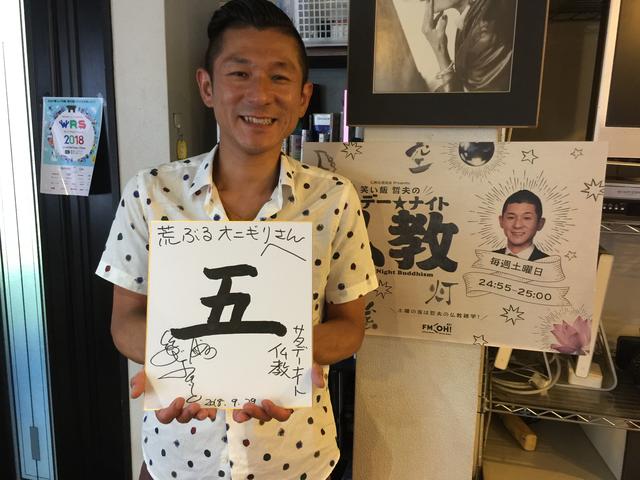 WRS
2018
荒ぶるオニギリさんへ
五
サタデーナイト
仏教
2018.9.29
笑い飯 哲夫の
デー★ナイト
教
Night Buddhism
空
灯
毎週土曜日
24:55-25:00
土曜の夜は哲夫の仏教雑学!
FM OH!